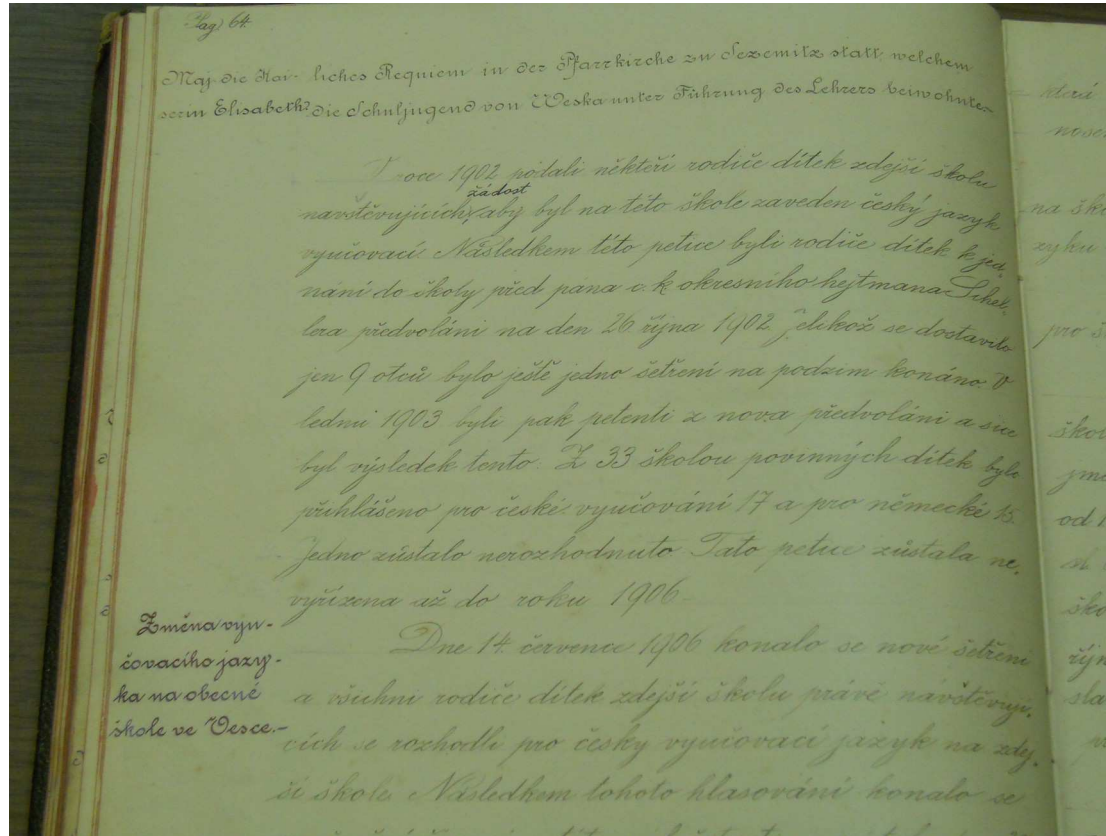 Pag. 64.
Maj. die Kai- liches Requiem in der Pfarrkirche zu Sezemitz statt, welchem
serin Elisabeth? die Schuljugend von Weska unter Führung des Lehrers beiwohnte.-
V roce 1902 podali někteří rodiče dítek zdejší školu
žádost
navštěvujících, aby byl na této škole zaveden český jazyk
vyučovací. Následkem této petice byli rodiče dítek k jed-
nání do školy před pána c. k. okresního hejtmana Schel-
lera předvoláni na den 26 října 1902. Jelikož se dostavilo
jen 9 otců bylo ještě jedno šetření na podzim konáno. V
lednu 1903 byli pak petenti z nova předvoláni a sice
byl výsledek tento: Z 33 školou povinných dítek bylo
přihlášeno pro české vyučování 17 a pro německé 15.
Jedno zůstalo nerozhodnuto. Tato petice zůstala ne-
vyřízena až do roku 1906.-
Změna vyu-
čovacího jazy-
ka na obecné
škole ve Vesce.-
Dne 14. července 1906 konalo se nové šetření
a všichni rodiče dítek zdejší školu právě navštěvují-
cích se rozhodli pro český vyučovací jazyk na zdej-
ší škole. Následkem tohoto hlasování konalo se
která
nose
na ško
zyku
pro š
škol
jme
od 1
ško
říjn
sla